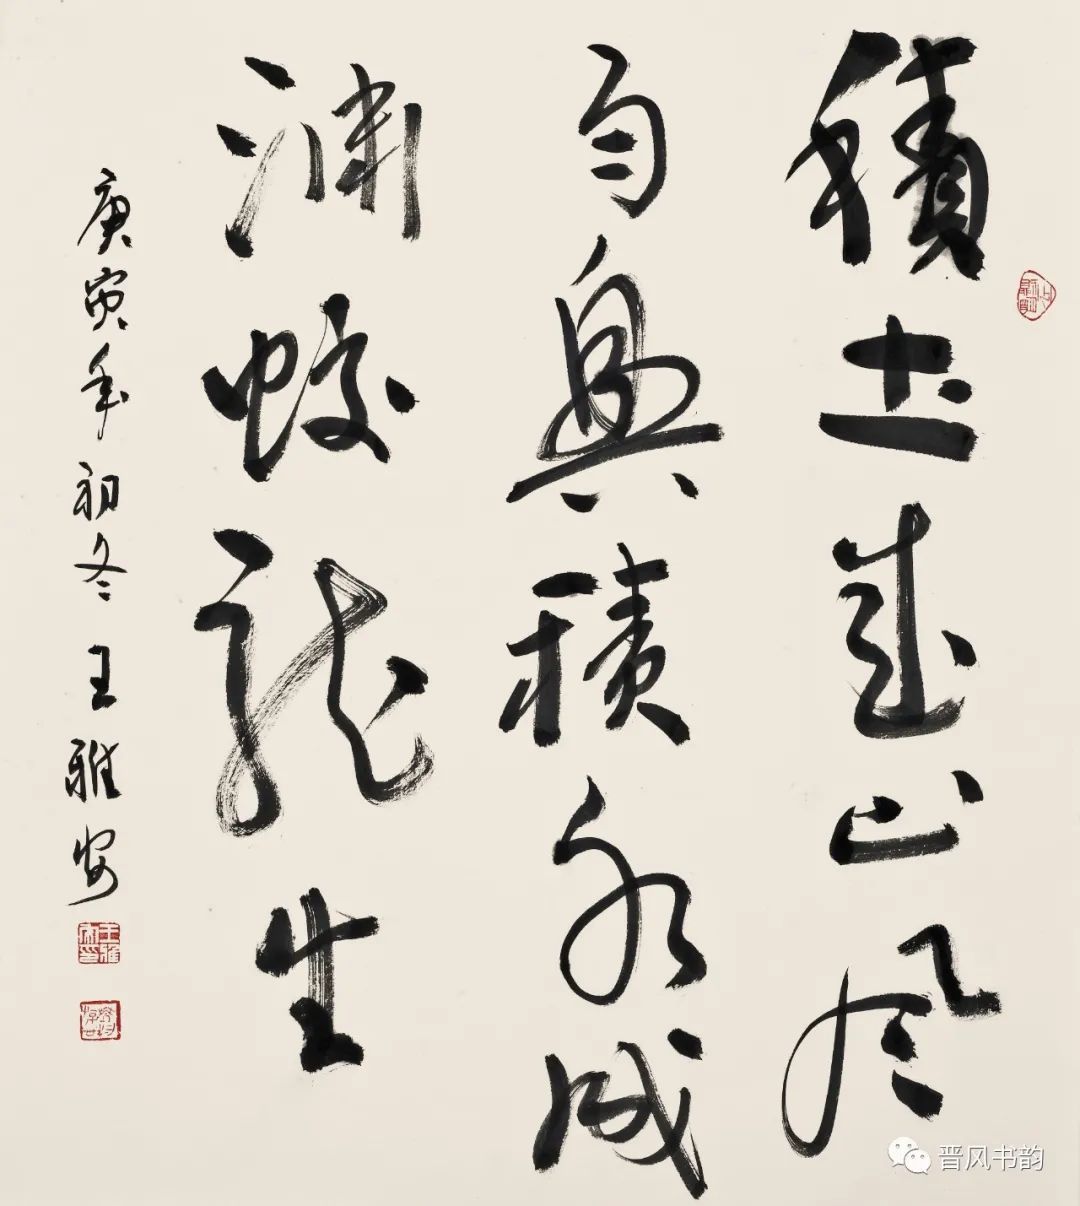 積土成山風
雨興積水成
淵蛟龍生
庚寅年初冬王雅安
王雅安印
晋风书韵